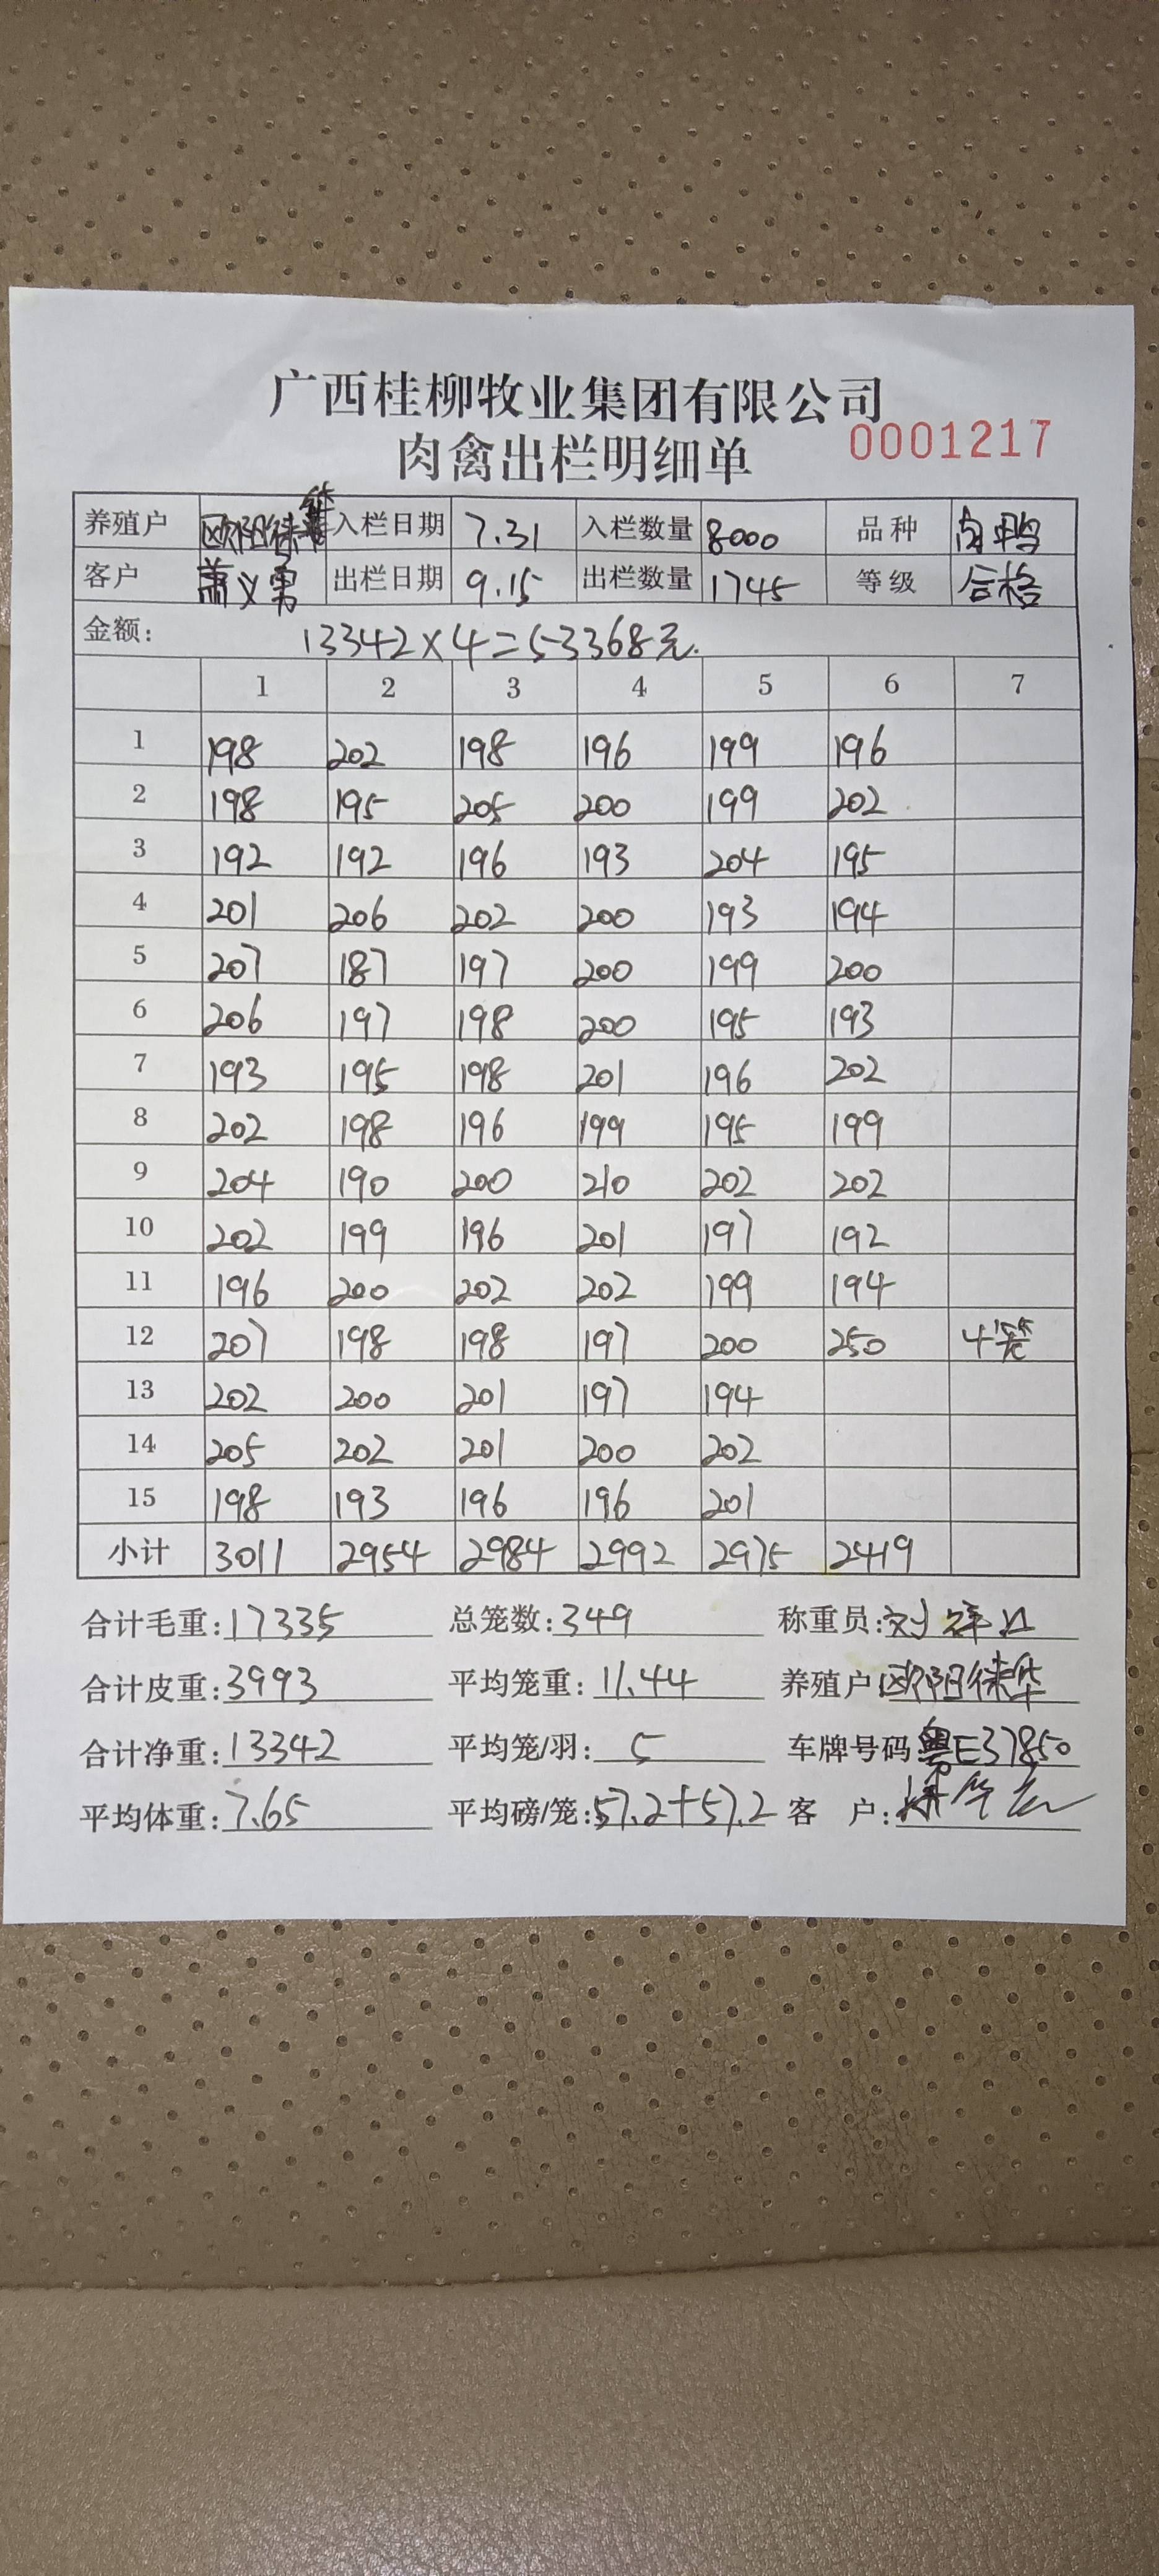 广西桂柳牧业集团有限公司
肉禽出栏明细单 0001217
养殖户 欧阳 入栏日期 7.31 入栏数量 8000 品种 肉鸭
客户 萧义男 出栏日期 9.15 出栏数量 1745 等级 合格
金额: 13342×4=53368元.
1 2 3 4 5 6 7
1 198 202 198 196 199 196
2 198 195 205 200 199 202
3 192 192 196 193 204 195
4 201 206 202 200 193 194
5 207 187 197 200 199 200
6 206 197 198 200 195 193
7 193 195 198 201 196 202
8 202 198 196 199 195 199
9 204 190 200 210 202 202
10 202 199 196 201 197 192
11 196 200 202 202 199 194
12 207 198 198 197 200 250 4笼
13 202 200 201 197 194
14 205 202 201 200 202
15 198 193 196 196 201
小计 3011 2954 2984 2992 2975 2419
合计毛重: 17335 总笼数: 349 称重员: 刘
合计皮重: 3993 平均笼重: 11.44 养殖户 欧阳
合计净重: 13342 平均笼/羽: 5 车牌号码 粤E37850
平均体重: 7.65 平均磅/笼: 57.2+57.2 客 户: